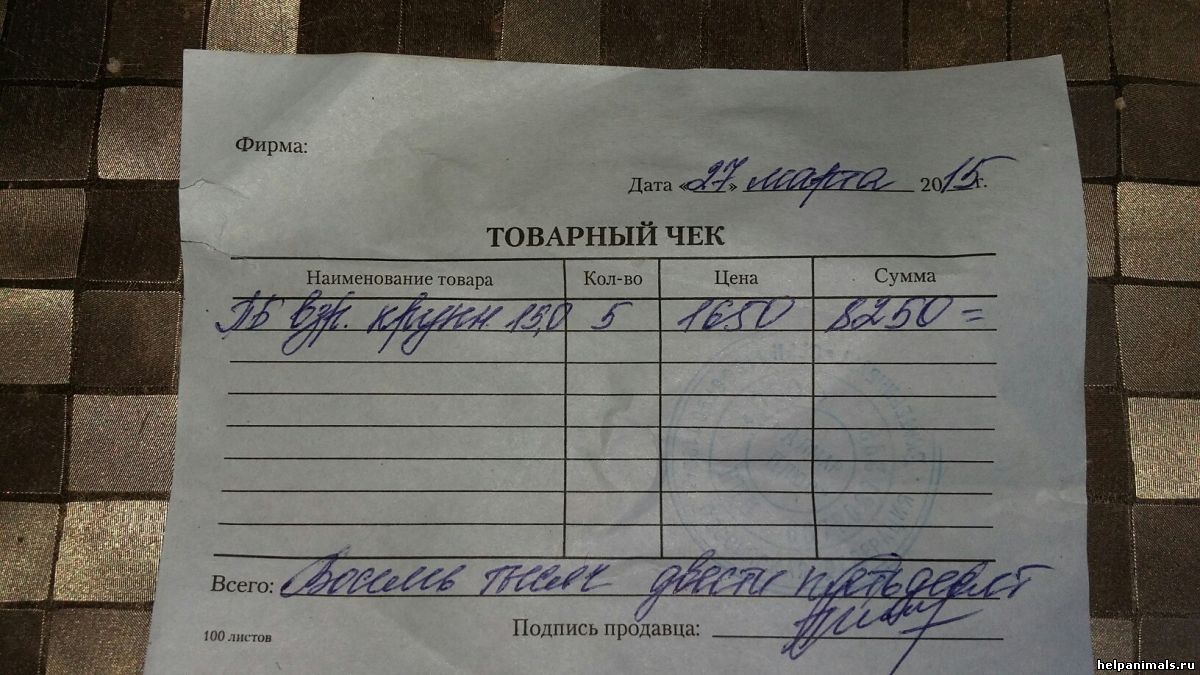 Фирма:
Дата «27» марта 2015 г.
ТОВАРНЫЙ ЧЕК
Наименование товара Кол-во Цена Сумма
ПБ взр. крупн 15,0 5 1650 8250=
Всего: Восемь тысяч двести пятьдесят
100 листов
Подпись продавца:
helpanimals.ru